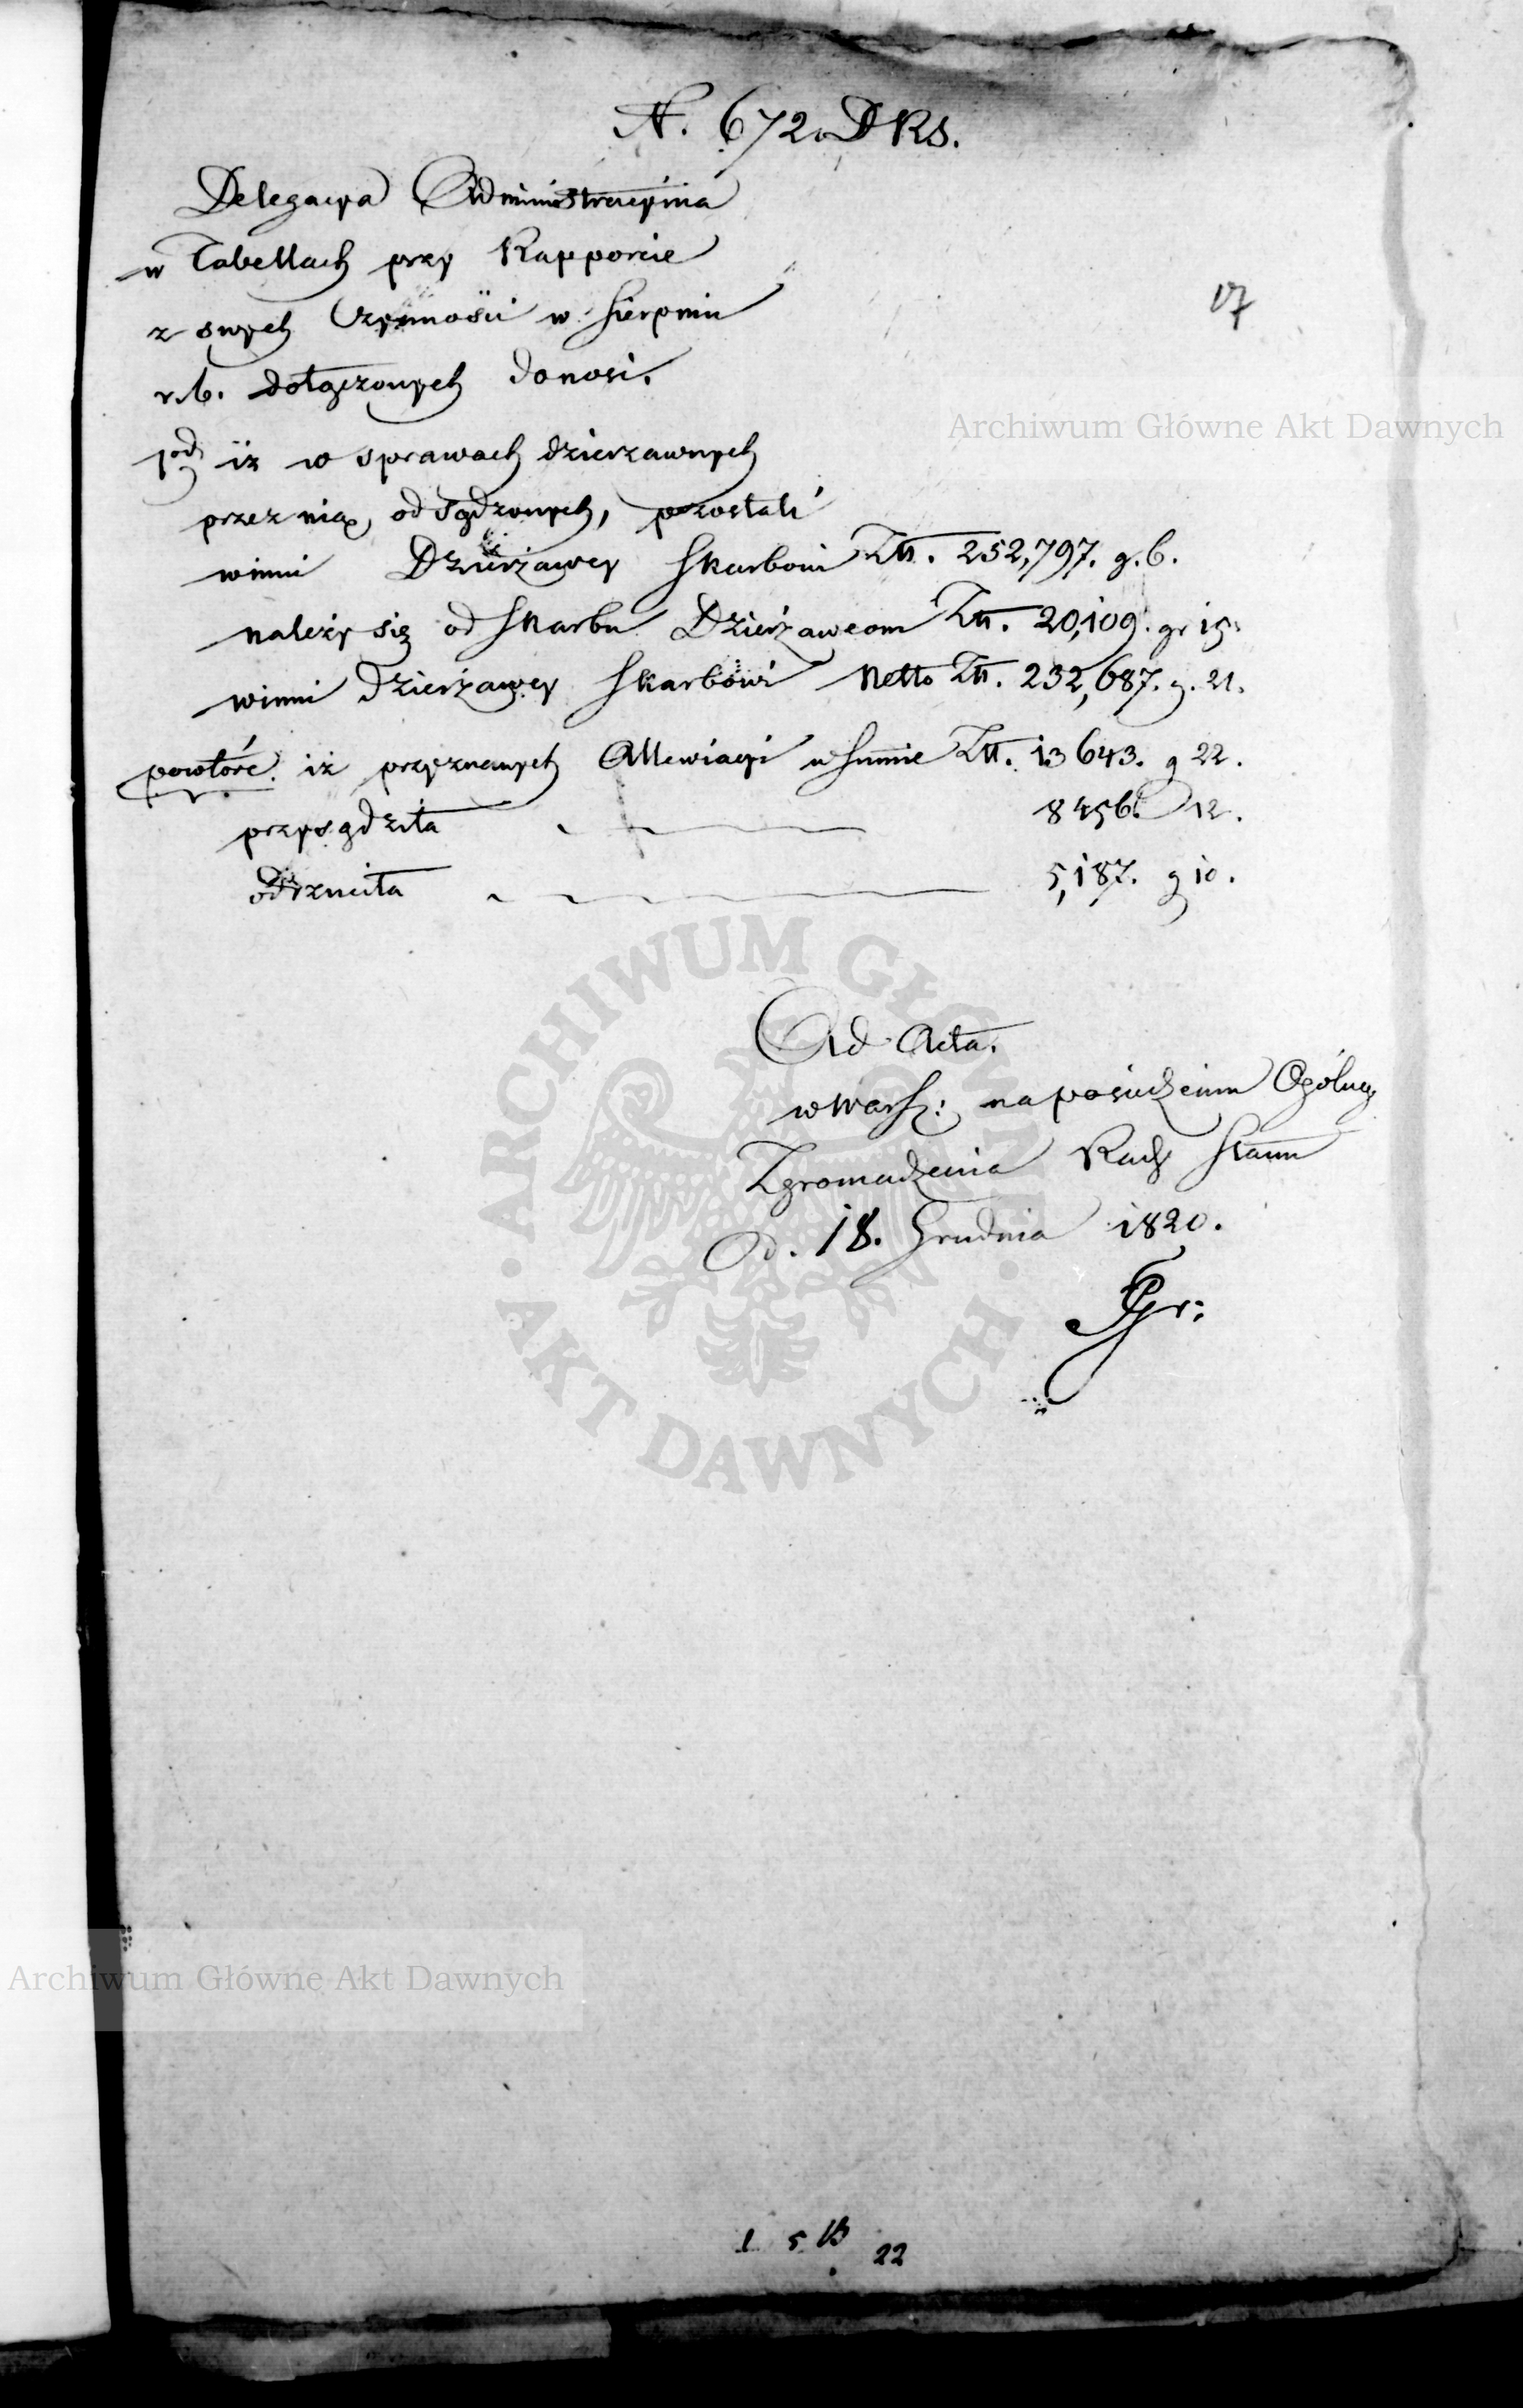 N. 672. DRS.
Delegacya Administracyina
w Tabellach przy Rapporcie
z swych Czynności w Sierpniu
r. b. dołączonych donosi.
17
Archiwum Główne Akt Dawnych
1od iż w sprawach dzierzawnych
przez nią odsądzonych, pozostali
winni Dzierżawcy Skarbowi Złł. 252,797. g. 6.
należy się od Skarbu Dzierżawcom Złł. 20,109. gr 15.
winni Dzierżawcy Skarbowi Netto Złł. 232,687. g. 21.
powtóre. iż przyznanych Allewiacyi w Summie Złł. 13643. g 22.
przysądziła 8456. 12.
Odrzuciła 5,187. g 10.
Ad Acta.
w Warsz: na posiedzeniu Ogólneg
Zgromadzenia Rady Stanu
d. 18. Grudnia 1820.
ARCHIWUM GŁÓWNE
AKT DAWNYCH
Archiwum Główne Akt Dawnych
22